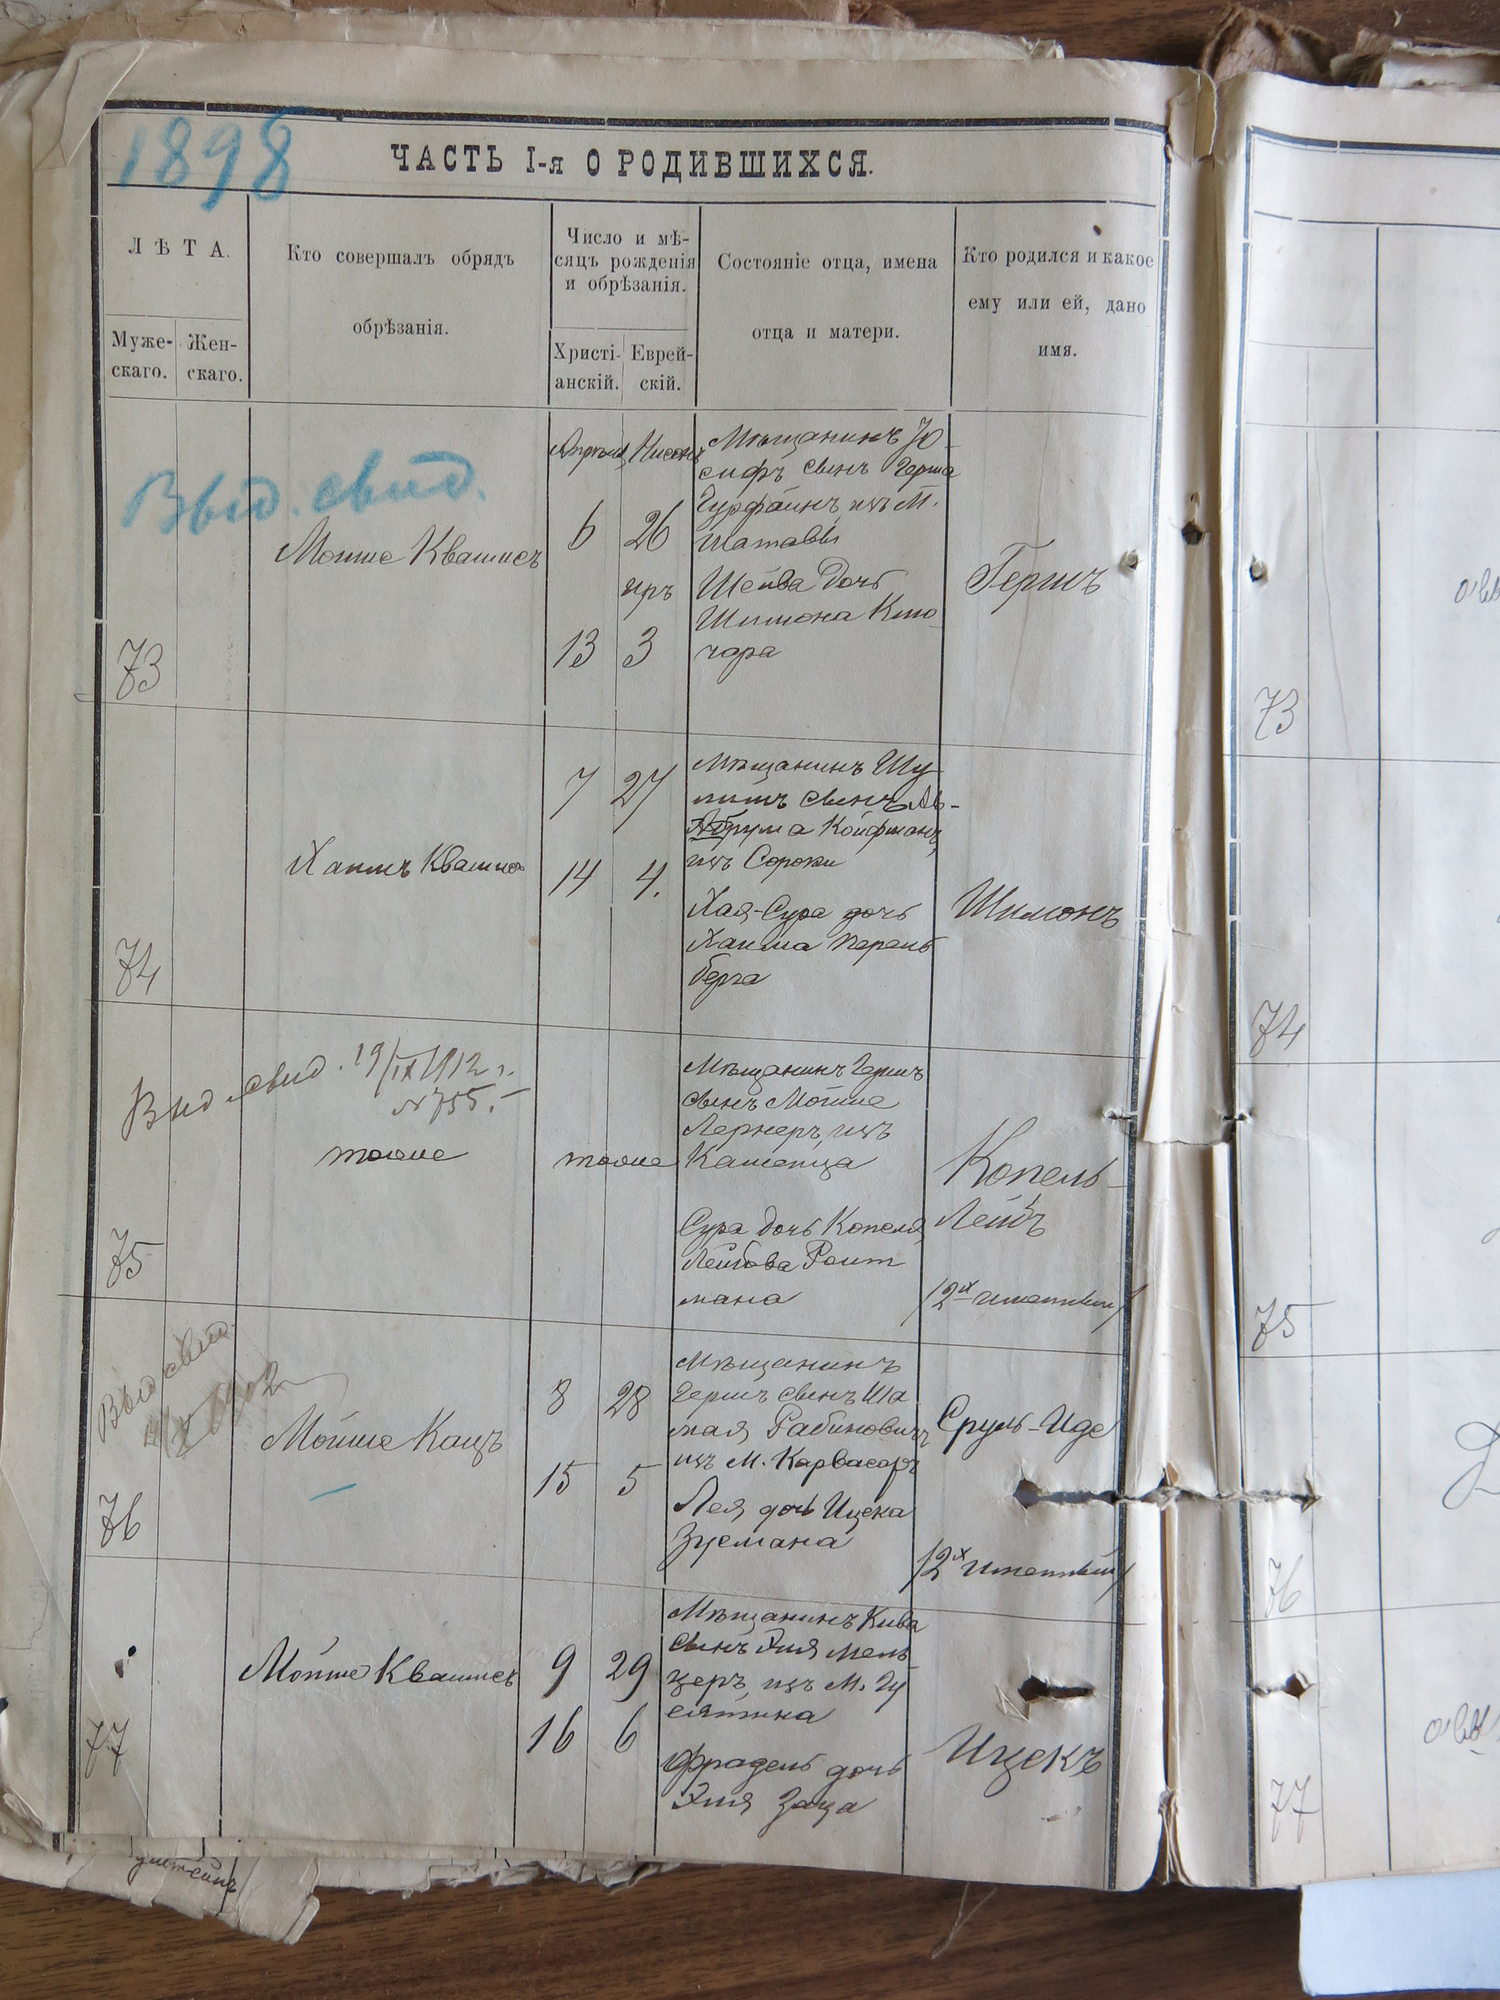 1898
ЧАСТЬ I-я О РОДИВШИХСЯ.
ЛѢТА.
Муже-
скаго.
Жен-
скаго.
Кто совершалъ обрядъ
обрѣзанія.
Число и мѣ-
сяцъ рожденія
и обрѣзанія.
Христі-
анскій.
Еврей-
скій.
Состояніе отца, имена
отца и матери.
Кто родился и какое
ему или ей, дано
имя.
Выд. свид.
73
Мойше Квашисъ
6 26
ир
13 3
Мѣщанинъ Іо-
сифъ сынъ Герша
Гурфаинъ, изъ М.
Шатавы
Шейва дочь
Шимона Кто-
чара
Гершъ
73
74
Хаимъ Квашис
7 27
14 4.
Мѣщанинъ Шу
лимъ сынъ Аб-
рума Койфманъ,
изъ Сороки
Хая-Сура дочь
Хаима Перель
берга
Шимонъ
74
Выд свид. 19/IX 1912 г.
№ 755.-
75
тоже
тоже
Мѣщанинъ Гершъ
сынъ Мойше
Лернеръ, изъ
Каменца
Сура дочь Копеля
Лейбова Роит
мана
Копель-
Лейбъ
/2х именный/
75
Выд свид.
1902
76
Мойше Кацъ
8 28
15 5
Мѣщанинъ
Гершъ сынъ Ша
мая Рабиновичъ
изъ М. Карвасаръ
Лея дочь Ицека
Зусмана
Сруль-Иде
/2х именный/
76
77
Мойше Квашисъ
9 29
16 6
Мѣщанинъ Кива
сынъ Эля Мель
церъ, изъ М. Гу
сятина
Фрадель дочь
Эля Заца
Ицекъ
77